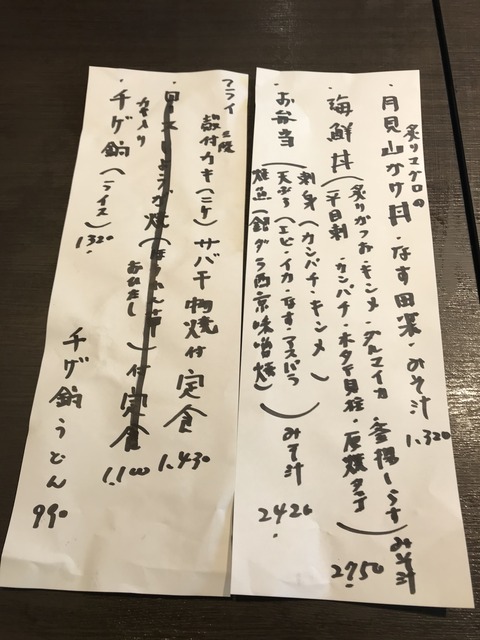 炙りマグロの
・月見山かけ丼・なす田楽・みそ汁 1,320
・海鮮丼(炙りかつお・キンメ・ダルマイカ・釜揚しらす
平目刺・カンパチ・ホタテ貝柱・厚焼タマゴ)みそ汁 2750
・お弁当(刺身(カンパチ・キンメ)
天ぷら(エビ・イカ・なす・アスパラ)
焼魚(銀ダラ西京味噌焼))みそ汁 2420
フライ 2段
・殻付カキ(二ケ)サバ干物焼付定食 1,430
付定食 1,100
カキ入り
・チゲ鍋(ライス)1320
チゲ鍋うどん 990